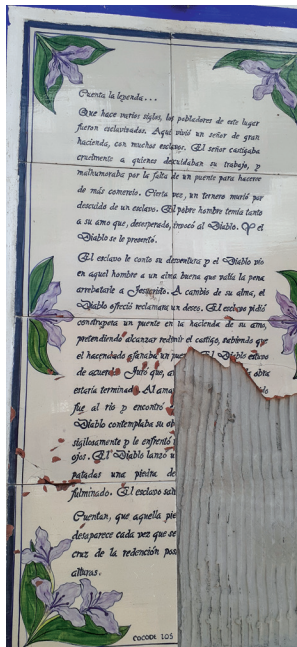 Cuenta la leyenda...
Que hace varios siglos, los pobladores de este lugar
fueron esclavizados. Aquí vivió un señor de gran
hacienda, con muchos esclavos. El señor castigaba
cruelmente a quienes descuidaban su trabajo, y
malhumoraba por la falta de un puente para hacerse
de más comercio. Cierta vez, un ternero murió por
descuido de un esclavo. El pobre hombre temía tanto
a su amo que, desesperado, invocó al Diablo. Y el
Diablo se le presentó.
El esclavo le contó su desventura y el Diablo vio
en aquel hombre a un alma buena que valía la pena
arrebatarle a Jesucristo. A cambio de su alma, el
Diablo ofreció reclamara un deseo. El esclavo pidió
construyera un puente en la hacienda de su amo,
pretendiendo alcanzar redimir el castigo, sabiendo que
el hacendado afanaba un El Diablo estuvo
de acuerdo. Juró que, obra
estaría terminada. Al
fue al río y encontró
Diablo contemplaba su
sigilosamente y le enfrentó
ojos. El Diablo lanzó
patadas una piedra
fulminado. El esclavo
Cuentan, que aquella
desaparece cada vez que se
cruz de la redención
alturas.
COCODE 105